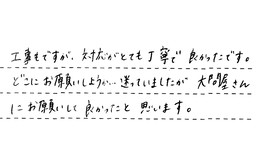 工事もですが、対応がとても丁寧で良かったです。
どこにお願いしようか…迷っていましたが 大問屋さん
にお願いして良かったと思います。